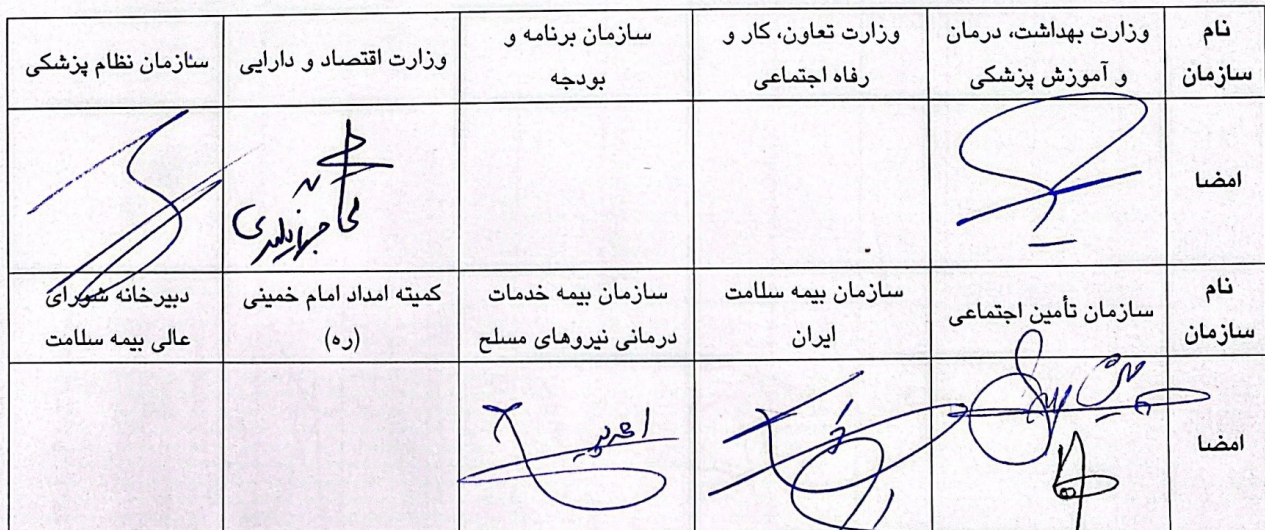 نام
سازمان
وزارت بهداشت، درمان
و آموزش پزشکی
وزارت تعاون، کار و
رفاه اجتماعی
سازمان برنامه و
بودجه
وزارت اقتصاد و دارایی
سازمان نظام پزشکی
امضا
نام
سازمان
سازمان تأمین اجتماعی
سازمان بیمه سلامت
ایران
سازمان بیمه خدمات
درمانی نیروهای مسلح
کمیته امداد امام خمینی
(ره)
دبیرخانه شورای
عالی بیمه سلامت
امضا